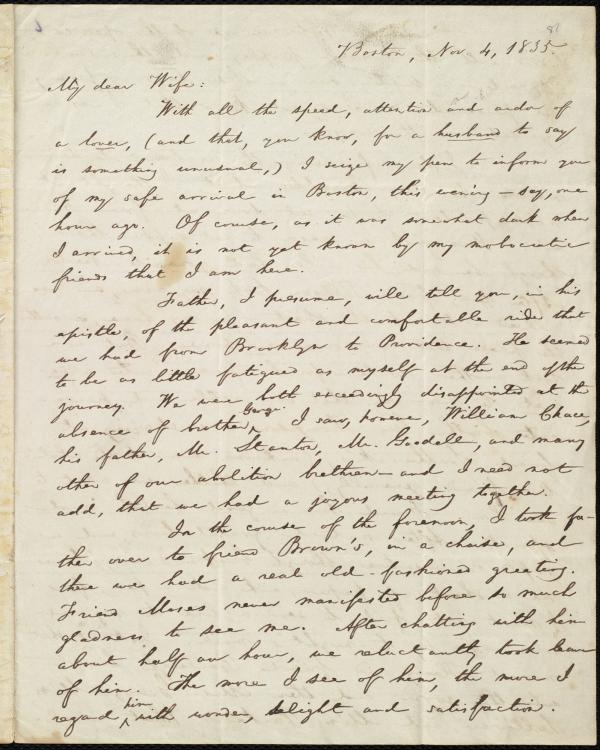 Boston, Nov. 4, 1835.
My dear Wife:
With all the speed, attention and ardor of
a lover, (and that, you know, for a husband to say
is something unusual,) I seize my pen to inform you
of my safe arrival in Boston, this evening — say, one
hour ago. Of course, as it was somewhat dark when
I arrived, it is not yet known by my mobocratic
friends that I am here.
Father, I presume, will tell you, in his
epistle, of the pleasant and comfortable ride that
we had from Brooklyn to Providence. He seemed
to be as little fatigued as myself at the end of the
journey. We were both exceedingly disappointed at the
George.
absence of brother ^ I saw, however, William Chace,
his father, Mr. Stanton, Mr. Goodell, and many
other of our abolition brethren — and I need not
add, that we had a joyous meeting together.
In the course of the forenoon, I took fa-
ther over to friend Brown's, in a chaise, and
there we had a real old-fashioned greeting.
Friend Moses never manifested before so much
gladness to see me. After chatting with him
about half an hour, we reluctantly took leave
of him. The more I see of him, the more I
him
regard ^ with wonder, delight and satisfaction.